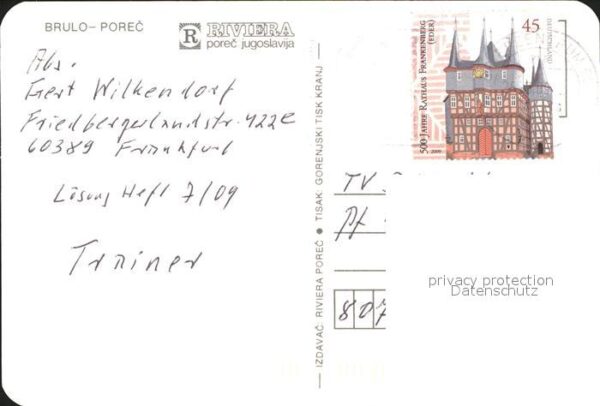 BRULO–POREČ
R RIVIERA
poreč jugoslavija
Abs.
Gert Wilkendorf
Friedbergerlandstr. 422e
60389 Frankfurt
Lösung Heft 7/09
Trainer
— IZDAVAČ RIVIERA POREČ ● TISAK: GORENJSKI TISK KRANJ —
500 JAHRE RATHAUS FRANKENBERG
(EDER)
2009
45
DEUTSCHLAND
TV
Pf
807
privacy protection
Datenschutz